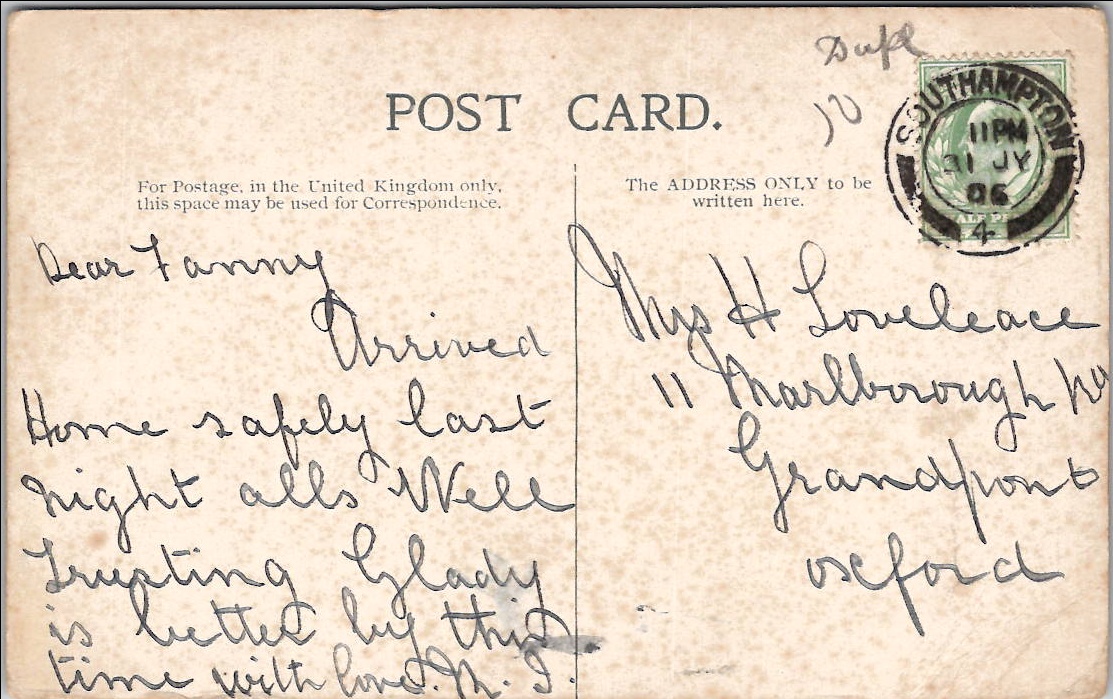 Dupl
POST CARD.
SOUTHAMPTON
11 PM
31 JY
06
4
For Postage, in the United Kingdom only,
this space may be used for Correspondence.
The ADDRESS ONLY to be
written here.
Dear Fanny
Arrived
Home safely last
night alls Well
Trusting Glady
is better by this
time with love. M. J.
Mrs H Loveleace
11 Marlborough Rd
Grandpont
Oxford